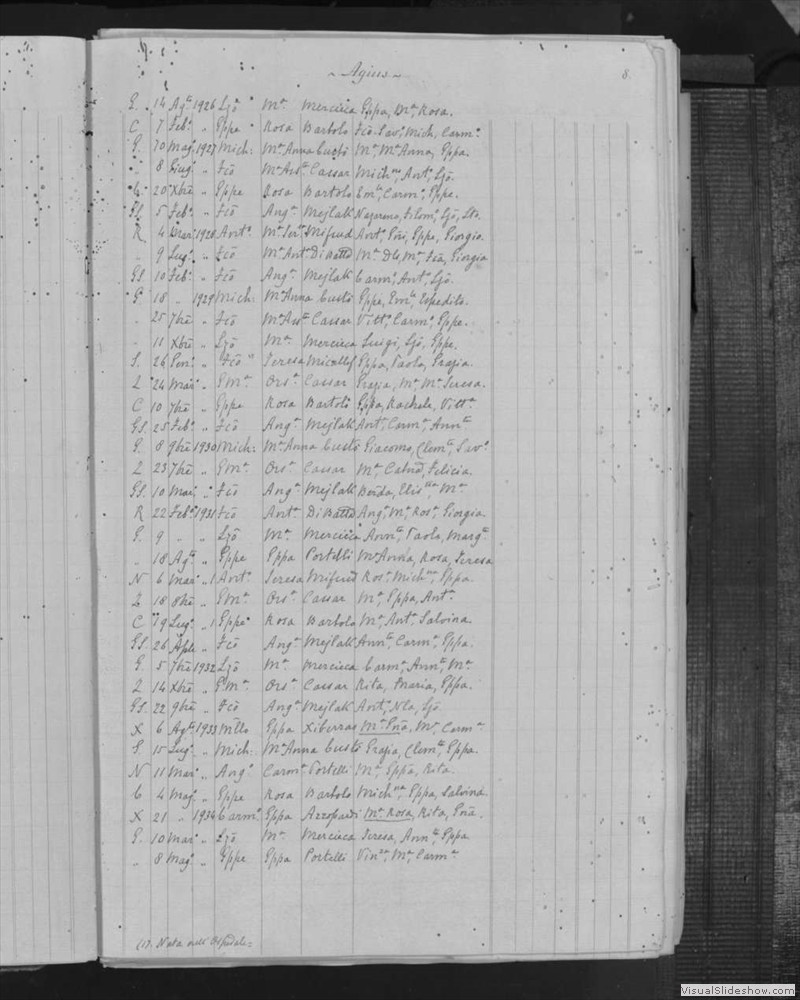 ~ Agius ~
8.
G. 14 Agto 1926 Ljō Ma Mercieca Eppa, Ma, Rosa.
C 7 Feb. " Eppe Rosa Bartolo Fcō. Savo, Mich, Carmo
G 10 Mag. 1927 Mich: Ma Anna Custo Ma, Ma Anna, Eppa.
" 8 Giug. " Fcō Ma Assta Cassar Mich, Anto, Ljō.
20 Xbre " Eppe Rosa Bartolo Carmo, Eppe.
GS. 5 Feb. " Fcō Anga Mejlak Nazareno, Filomo, Ljō,
R 4 Mar. 1928 Anto Ma Mifsud Anto, Eppe, Giorgio.
" 9 Lug. " Fcō Ma Anta DiBatta Ma Ma, Giorgia
GS 10 Feb. " Fcō Anga Mejlak Carmo, Anto, Ljō.
G 18 " 1929 Mich: Ma Anna Custo Eppe, Espedito.
" 25 7bre " Fcō Ma Assta Cassar Vitto, Carmo, Eppe.
" 11 Xbre " Ljō Ma Mercieca Luigi, Ljō, Eppe.
S. 26 Gen. " Fcō Teresa Micallef Eppa, Paola, Grazia.
L 24 Mar. " Emo Orsa Cassar Grazia, Ma, Ma Teresa.
C 10 7bre " Eppe Rosa Bartolo Eppa, Rachela, Vitta
GS. 25 Feb. " Fcō Anga Mejlak Anta, Carma, Annta
G. 8 9bre 1930 Mich: Ma Anna Custo Giacomo, Clemte, Savo
L 23 7bre " Emo Orsa Cassar Ma Felicia.
GS. 10 Mar. " Fcō Anga Mejlak Ma
R 22 Feb. 1931 Fcō Anta DiBatta Anga, Ma, Rosa, Giorgia.
G. 9 " " Ljō Ma Mercieca Annta, Paola, Margta
" 18 Agto " Eppe Eppa Portelli Ma Anna, Rosa, Teresa
N 6 Mar. " 1 Anto Teresa Mifsud Rosa, Micha, Eppa.
L 18 8bre " Emo Orsa Cassar Ma, Eppa, Anta
C 19 Lug. " 1 Eppe Rosa Bartolo Ma, Anta, Salvina.
GS. 26 Aple " Fcō Anga Mejlak Annta, Carma, Eppa.
G. 5 7bre 1932 Ljō Ma Mercieca Carma, Annta, Ma
L 14 Xbre " Emo Orsa Cassar Rita, Maria, Eppa.
GS. 22 9bre " Fcō Anga Mejlak Anto, Nla, Ljō
X 6 Agto 1933 Mllo Eppa Xiberras Ma Gña, Ma, Carma
G 15 Lug. " Mich: Ma Anna Custo Grazia, Clemta, Eppa.
N 11 Mar. " Ango Carma Portelli Ma, Eppa, Rita.
C 4 Mag. " Eppe Rosa Bartolo Micha, Eppa, Salvina.
X 21 " 1934 Carmo Eppa Azzopardi Ma Rosa, Rita, Gña.
G. 10 Mar. " Ljō Ma Mercieca Teresa, Annta, Eppa
" 8 Mag. " Eppe Eppa Portelli Vinza, Ma, Carma
(1). Nata nell' Ospedale
VisualSlideshow.com